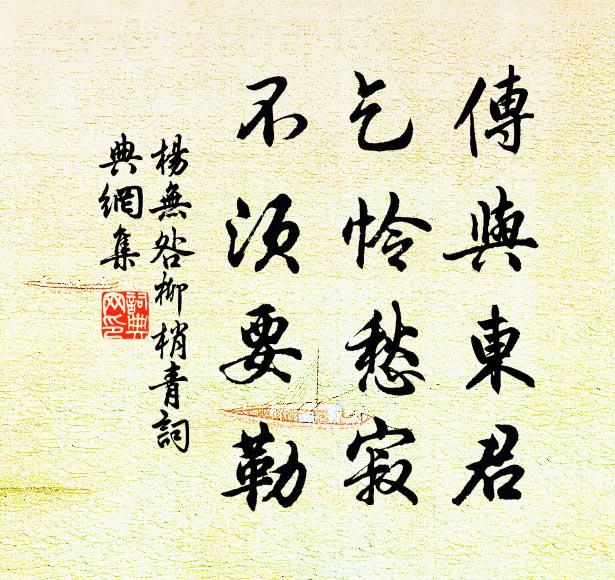 傳與東君
乞怜愁寂
不須要勒
楊無咎柳梢青詞
典網集
詞典
网印